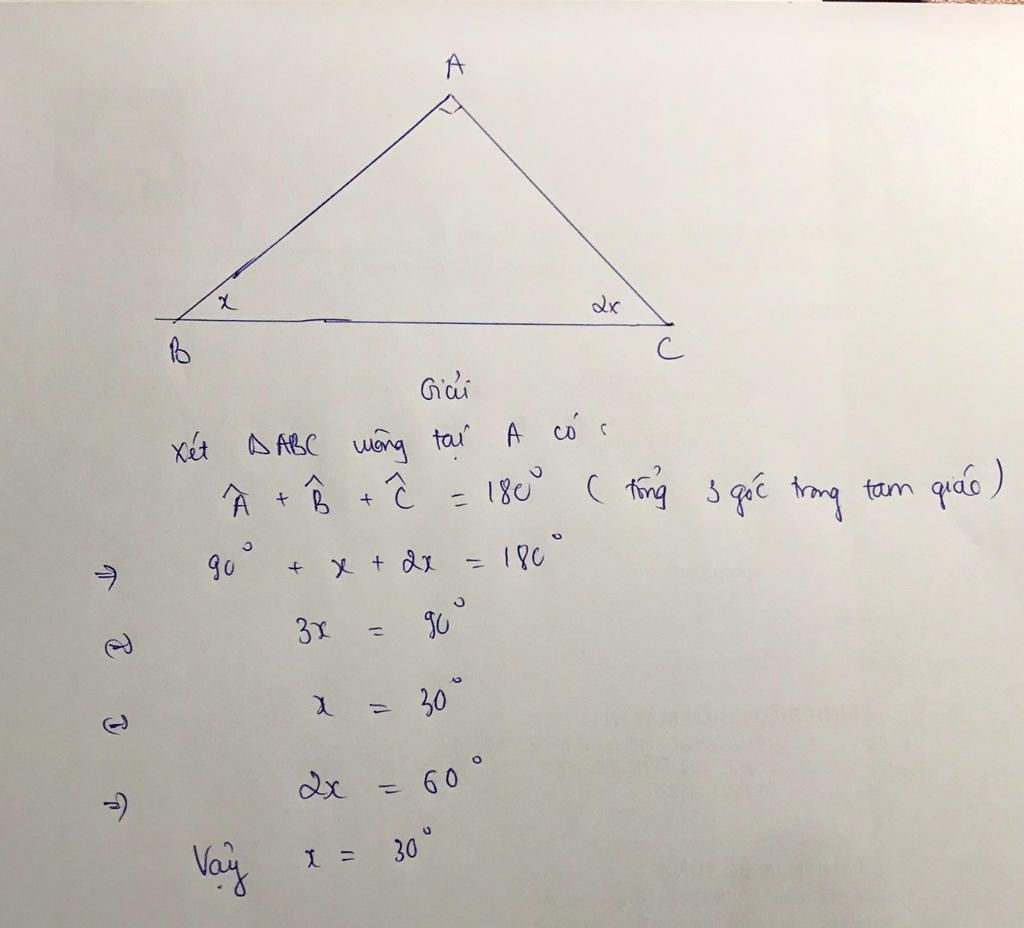 A
x
2x
B
C
Giải
Xét △ABC vuông tại A có :
Â + B̂ + Ĉ = 180° ( tổng 3 góc trong tam giác )
⇒ 90° + x + 2x = 180°
⇔ 3x = 90°
⇔ x = 30°
⇒ 2x = 60°
Vậy x = 30°